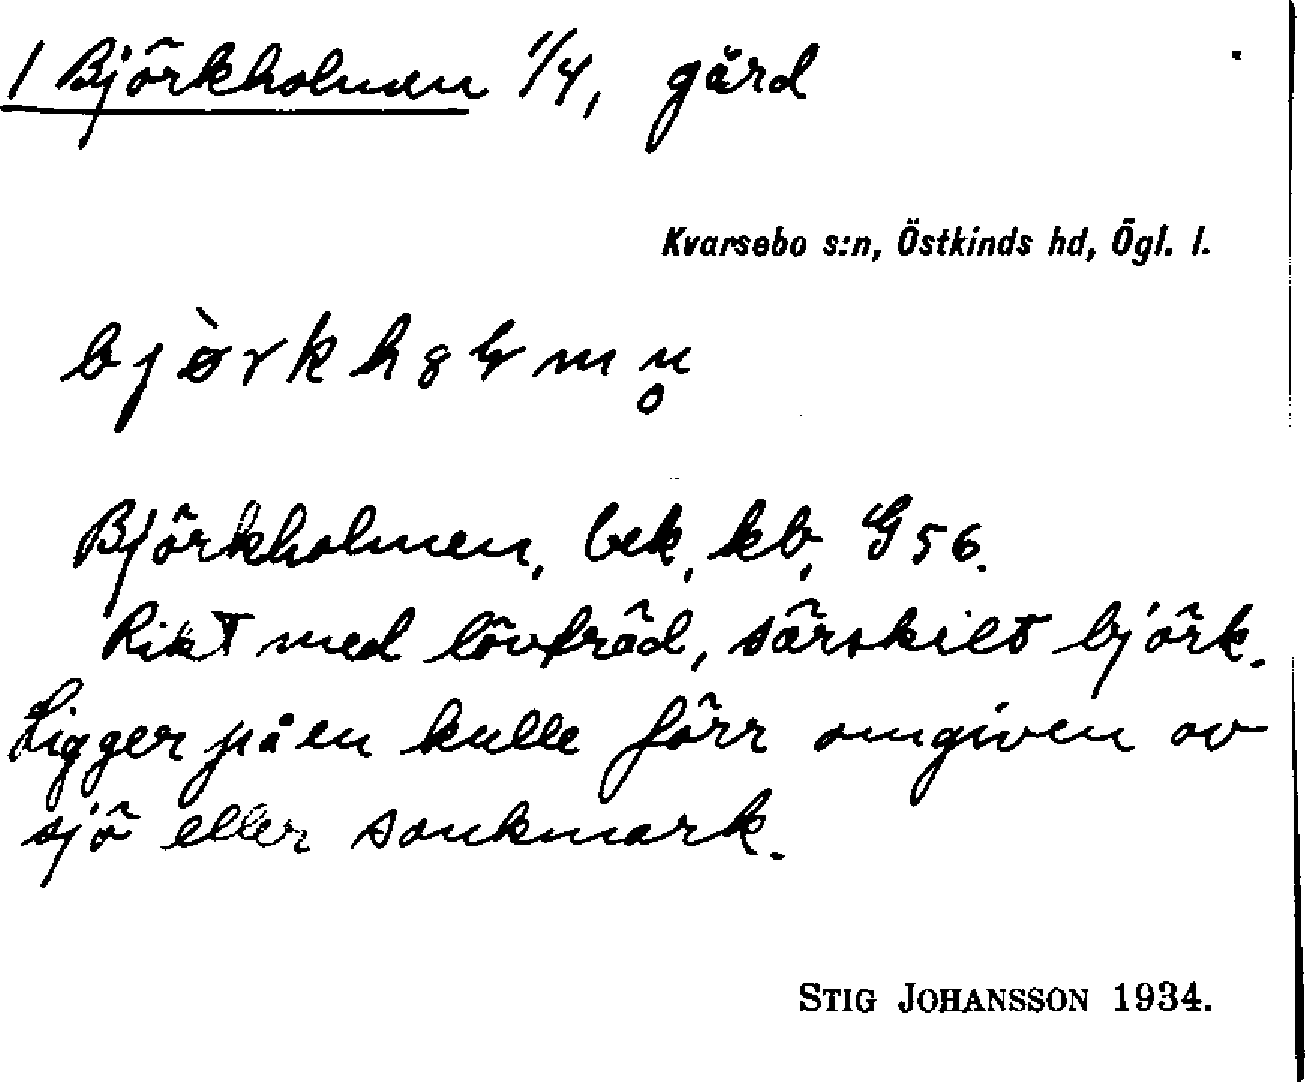 1 Björkholmen 1/4, gård
Kvarsebo s:n, Östkinds hd, Ögl. l.
Björkholmen, bek, kb, G 56.
Rikt med lövträd, särskilt björk.
Ligger på en kulle förr omgiven av
sjö eller sankmark.
STIG JOHANSSON 1934.